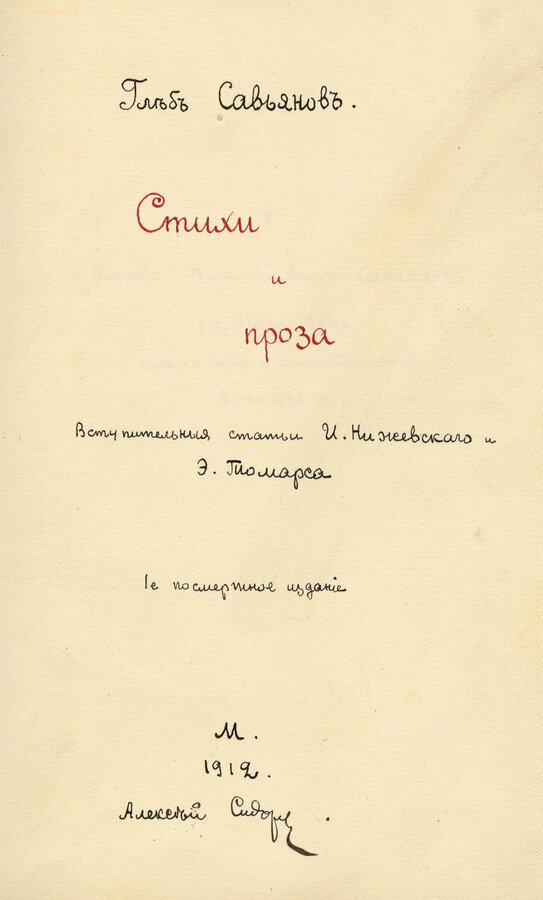 Глѣбъ Савьяновъ.
Стихи
и
проза
Вступительныя статьи И. Нижевскаго и
Э. Томарса
1е посмертное изданіе
М.
1912.
Алексѣй